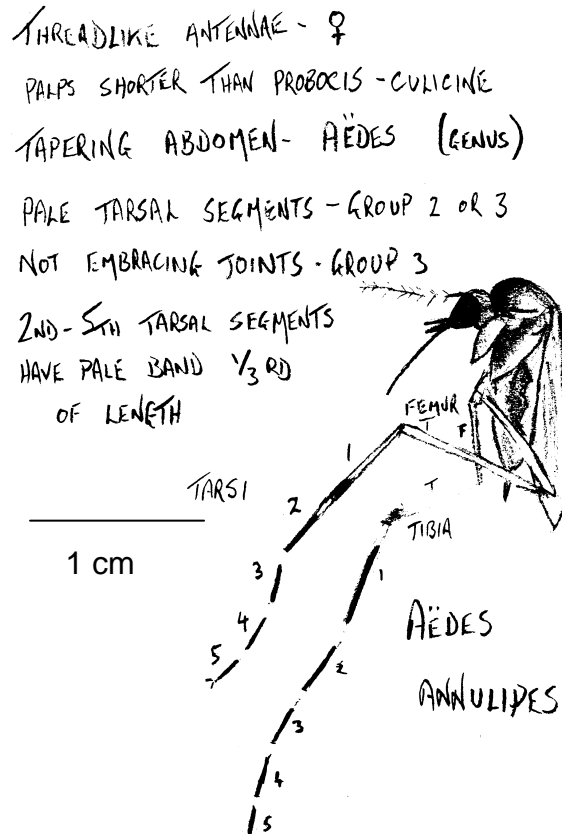 THREADLIKE ANTENNAE - ♀
PALPS SHORTER THAN PROBOCIS - CULICINE
TAPERING ABDOMEN - AËDES (GENUS)
PALE TARSAL SEGMENTS - GROUP 2 OR 3
NOT EMBRACING JOINTS - GROUP 3
2ND - 5TH TARSAL SEGMENTS
HAVE PALE BAND 1/3 RD
OF LENGTH
FEMUR
T
F
1
TARSI
2
T
1 cm
TIBIA
3
1
4
AËDES
5
2
ANNULIPES
3
4
5